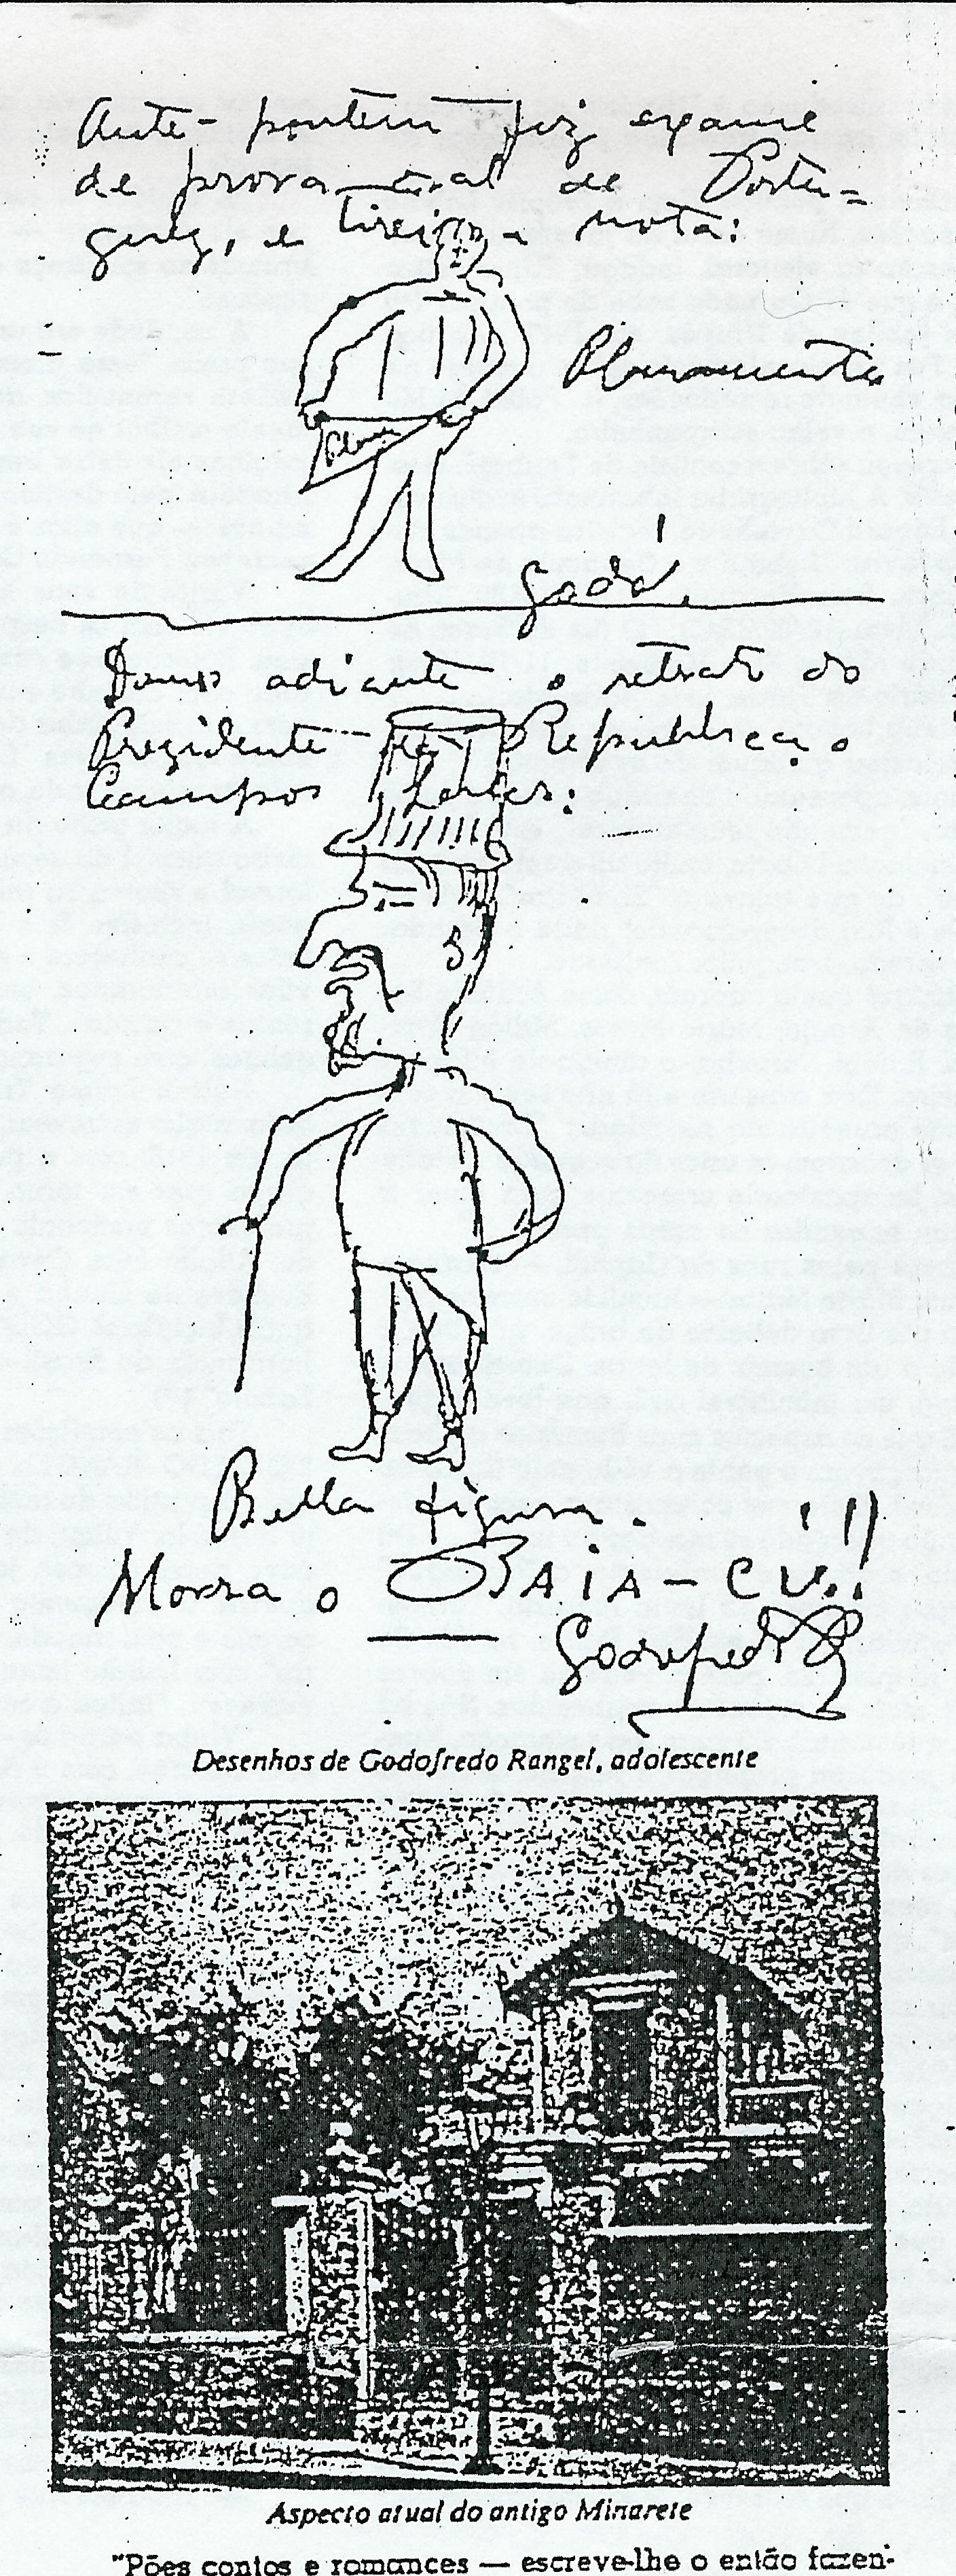 Ante-hontem fiz exame
de prova oral de Portu-
guez, e tirei a nota:
Plenamente
Plena
Godó.
Damos adiante o retrato do
Prezidente da Republica, o
Campos Salles:
Bella figura.
Morra o BAiA-CU!!!
Godofredo
Desenhos de Godofredo Rangel, adolescente
Aspecto atual do antigo Minarete
"Pões contos e romances — escreve-lhe o então fazen-